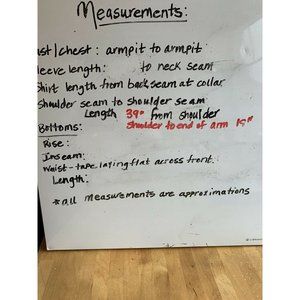 Measurements:
ust/chest: armpit to armpit
leeve length: to neck seam
hirt length from back seam at collar
shoulder seam to shoulder seam
Length 39" from shoulder
Bottoms: Shoulder to end of arm 15"
Rise:
Inseam:
Waist - tape laying flat across front
Length:
* all measurements are approximations